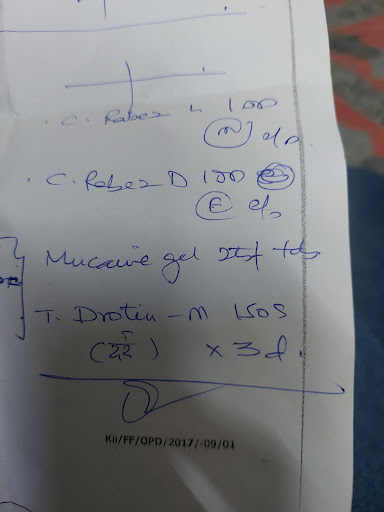 . C. Rabez L 100
(M) e/o
. C. Rabez D 100
(E) e/o
Mucaine gel 2tsf tds
T. Drotin-M 1SOS
x 3d.
Kii/FF/OPD/2017/-09/01